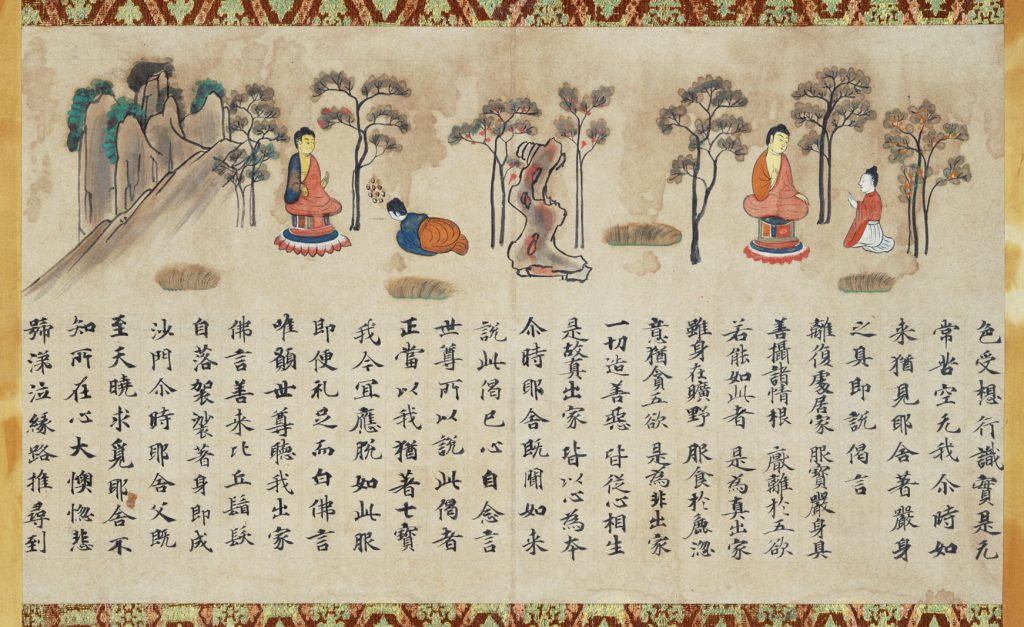 色受想行識實是无
常苦空无我尒時如
来猶見耶舍著嚴身
之具即說偈言
雖復處居家 服寶嚴身具
善攝諸情根 厭離於五欲
若能如此者 是為真出家
雖身在曠野 服食於麁澁
意猶貪五欲 是為非出家
一切造善惡 皆従心相生
是故真出家 皆以心為本
尒時耶舍既聞如来
說此偈已心自念言
世尊所以說此偈者
正當以我猶著七寶
我今冝應脱如此服
即便礼足而白佛言
唯願世尊聽我出家
佛言善来比丘鬚髮
自落袈裟著身即成
沙門尒時耶舍父既
至天曉求覓耶舍不
知所在心大懊惚悲
號涕泣緣路推尋到